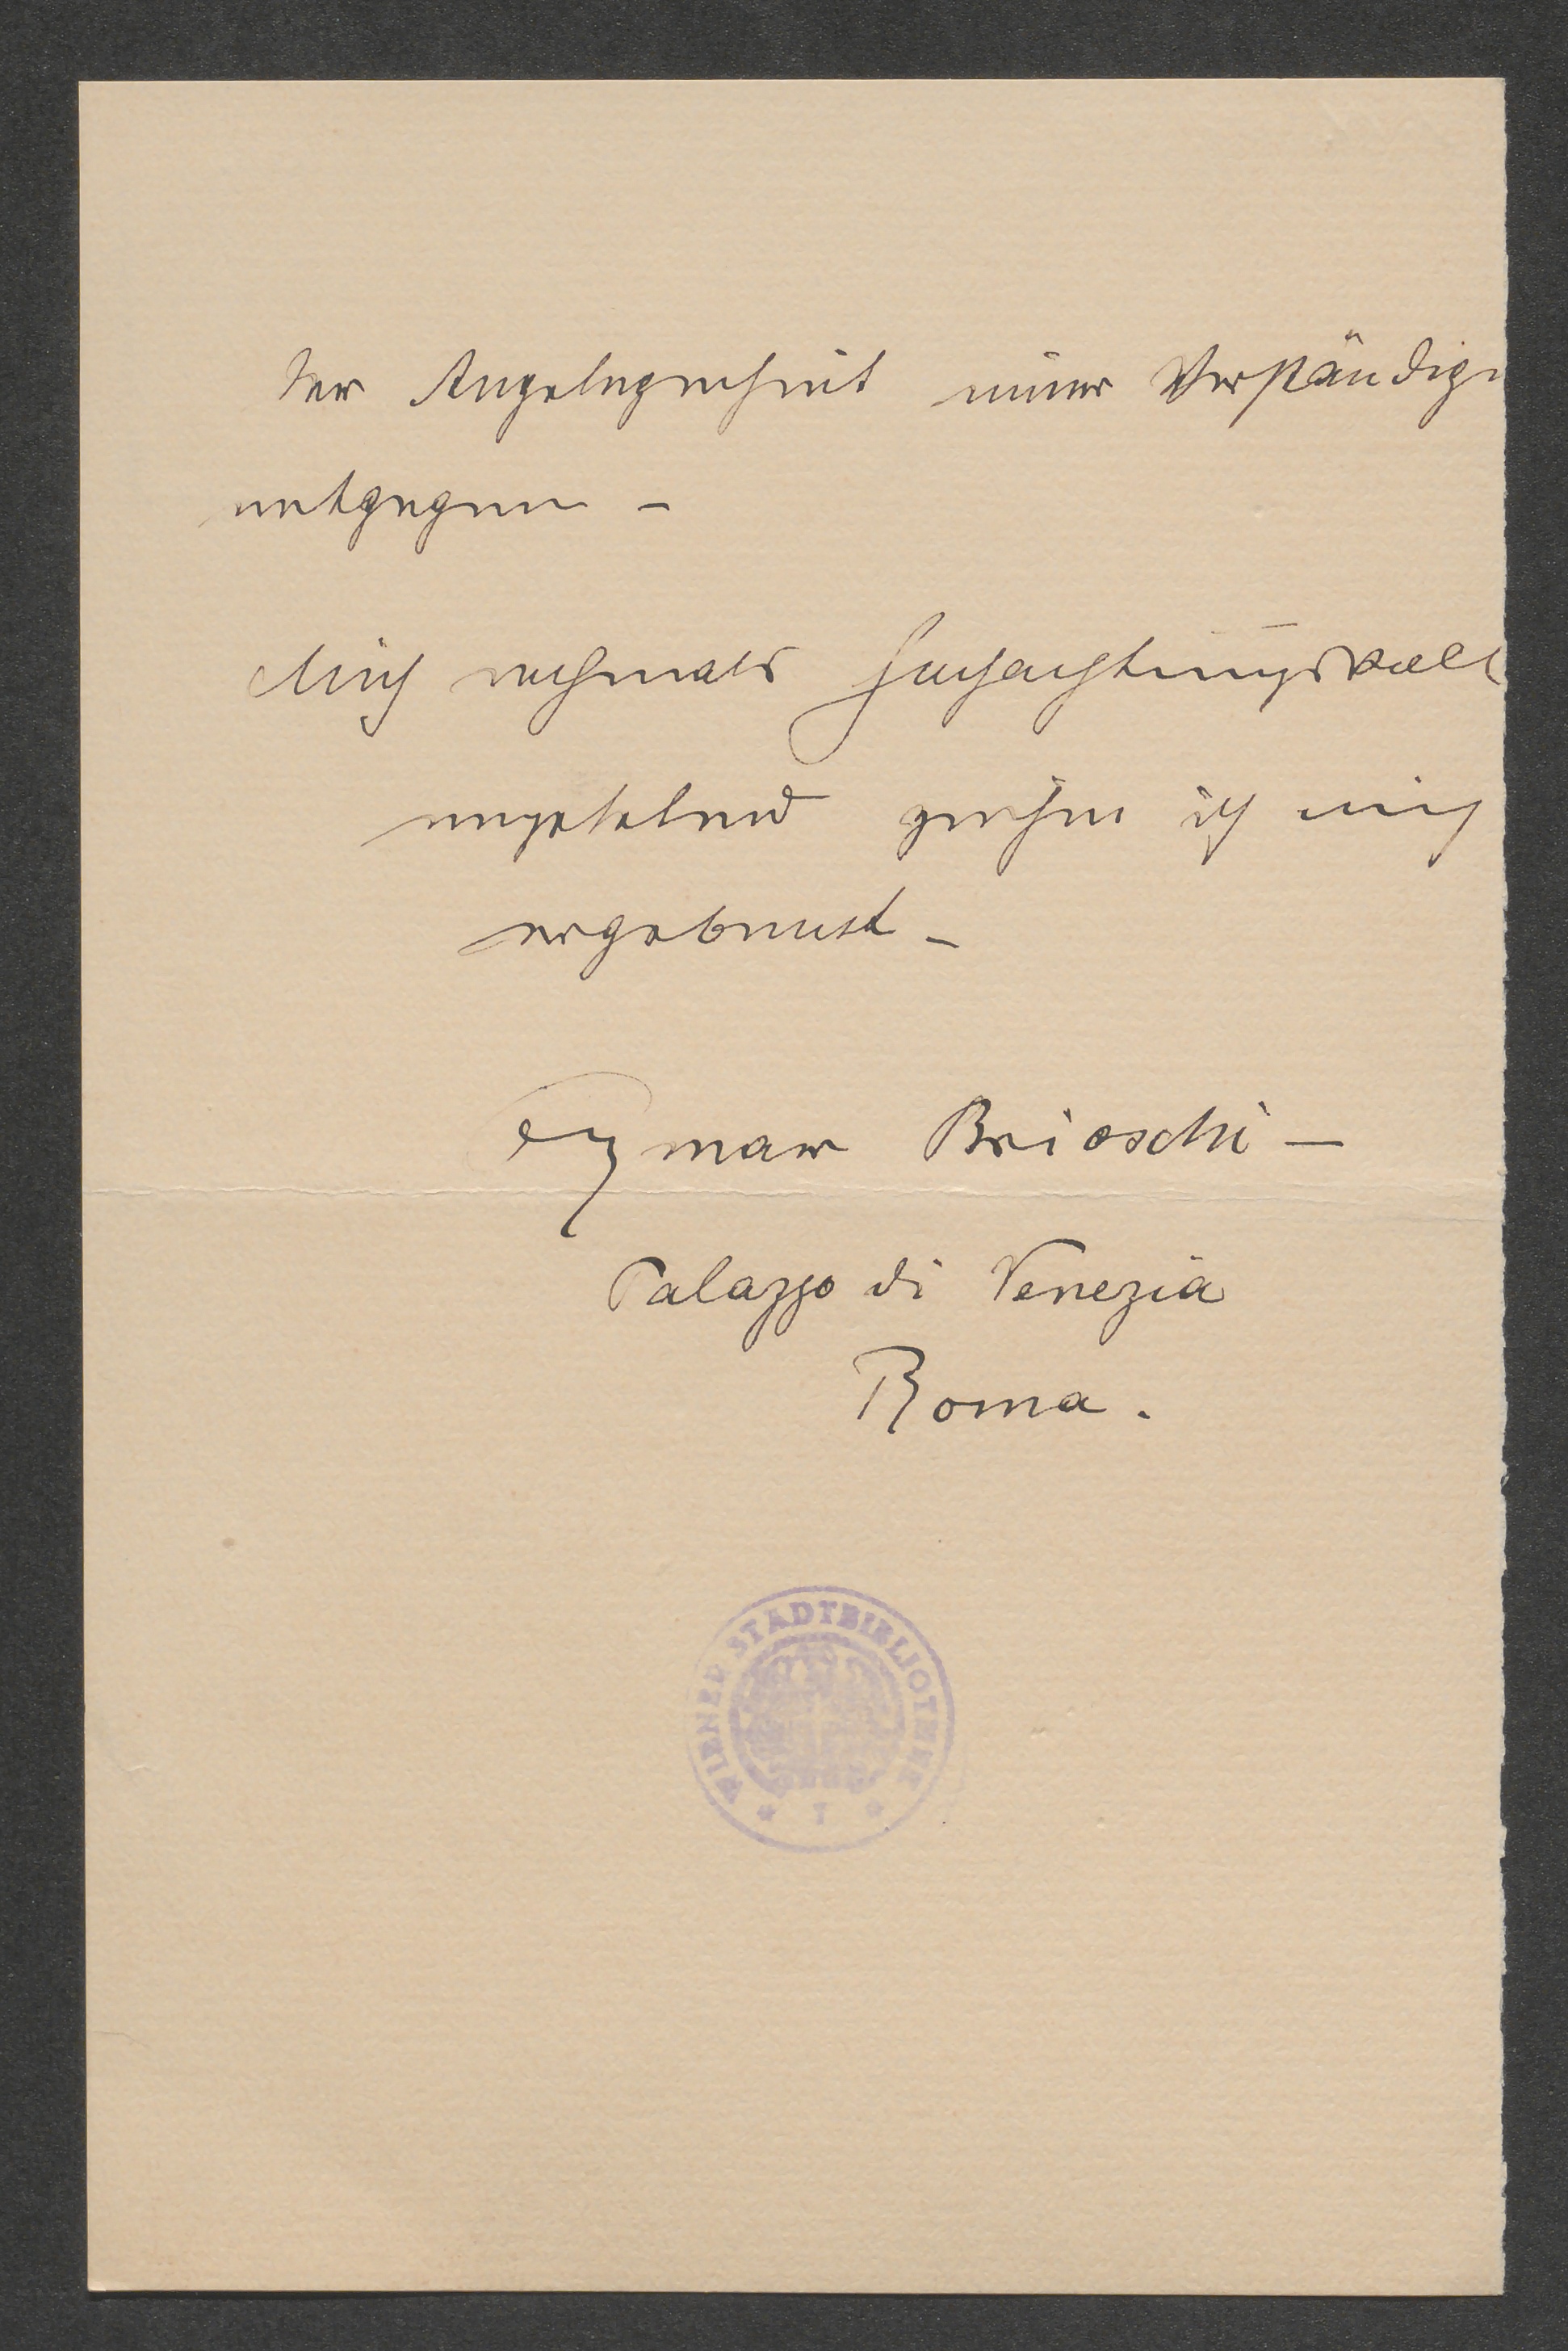 der Angelegenheit einer Verständig
entgegen –
Mich nochmals hochachtungsvoll
zeichne ich mich
ergebenst –
Othmar Brioschi –
Palazzo di Venezia
Roma.
WIENER STADTBIBLIOTHEK